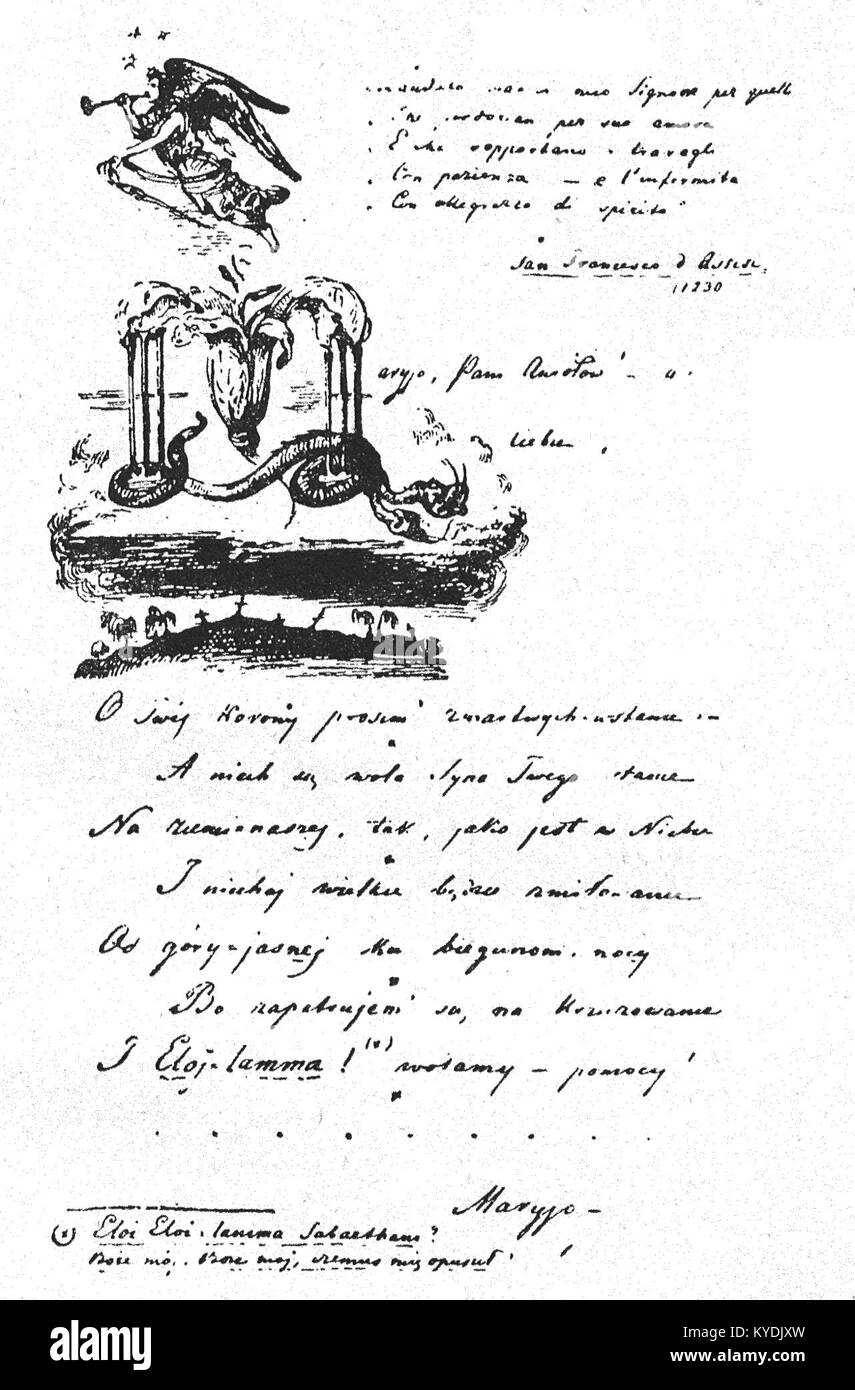 mio Signore per quelli
per suo amore
E che sopportano travagli
Con pazienza — e l'infermita
Con allegrezza di spirito"
San Francesco d'Assisi.
1230
aryjo, Pani Aniołów! —
Ciebie
O Twej Korony prosim' zmartwych-wstanie :—
A niech się wola Syna Twego stanie
Na ziemi-naszej, tak, jako jest w Niebie
I niechaj wielkie będzie zmiłowanie
Od góry-jasnej ku biegunom nocy
Bo zapatrujem' się, na Krzyżowanie
I Eloj-lamma! (x) wołamy — pomocy!
. . . . . . . .
Maryjo —
!
(x) Eloi Eloi lamma Sabacthani?
Boże mój, Boże mój, czemuś mię opuścił
alamy
Image ID: KYDJXW
www.alamy.com